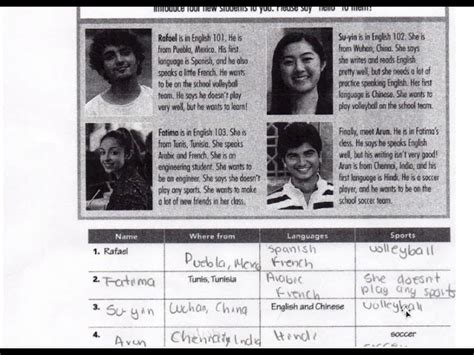 introduce four new students to you. Please say "hello" to them!
Rafael is in English 101. He is
from Puebla, Mexico. His first
language is Spanish, and he also
speaks a little French. He wants
to be on the school volleyball
team. He says he doesn't play
very well, but he wants to learn!
Su-yin is in English 102. She is
from Wuhan, China. She says
she writes and reads English
pretty well, but she needs a lot of
practice speaking English. Her first
language is Chinese. She wants to
play volleyball on the school team.
Fatima is in English 103. She is
from Tunis, Tunisia. She speaks
Arabic and French. She is an
engineering student. She wants to
be an engineer. She says she doesn't
play any sports. She wants to make
a lot of new friends in her class.
Finally, meet Arun. He is in Fatima's
class. He says he speaks English
well, but his writing isn't very good!
Arun is from Chennai, India, and his
first language is Hindi. He is a soccer
player, and he wants to be on the
school soccer team.
Name Where from Languages Sports
1. Rafael Puebla, Mexi Spanish French volleyball
2. Fatima Tunis, Tunisia Arabic French She doesnt play any sports
3. Su-yin Wuhan, China English and Chinese volleyball
4. Arun Chennai, India Hindi soccer
soccer